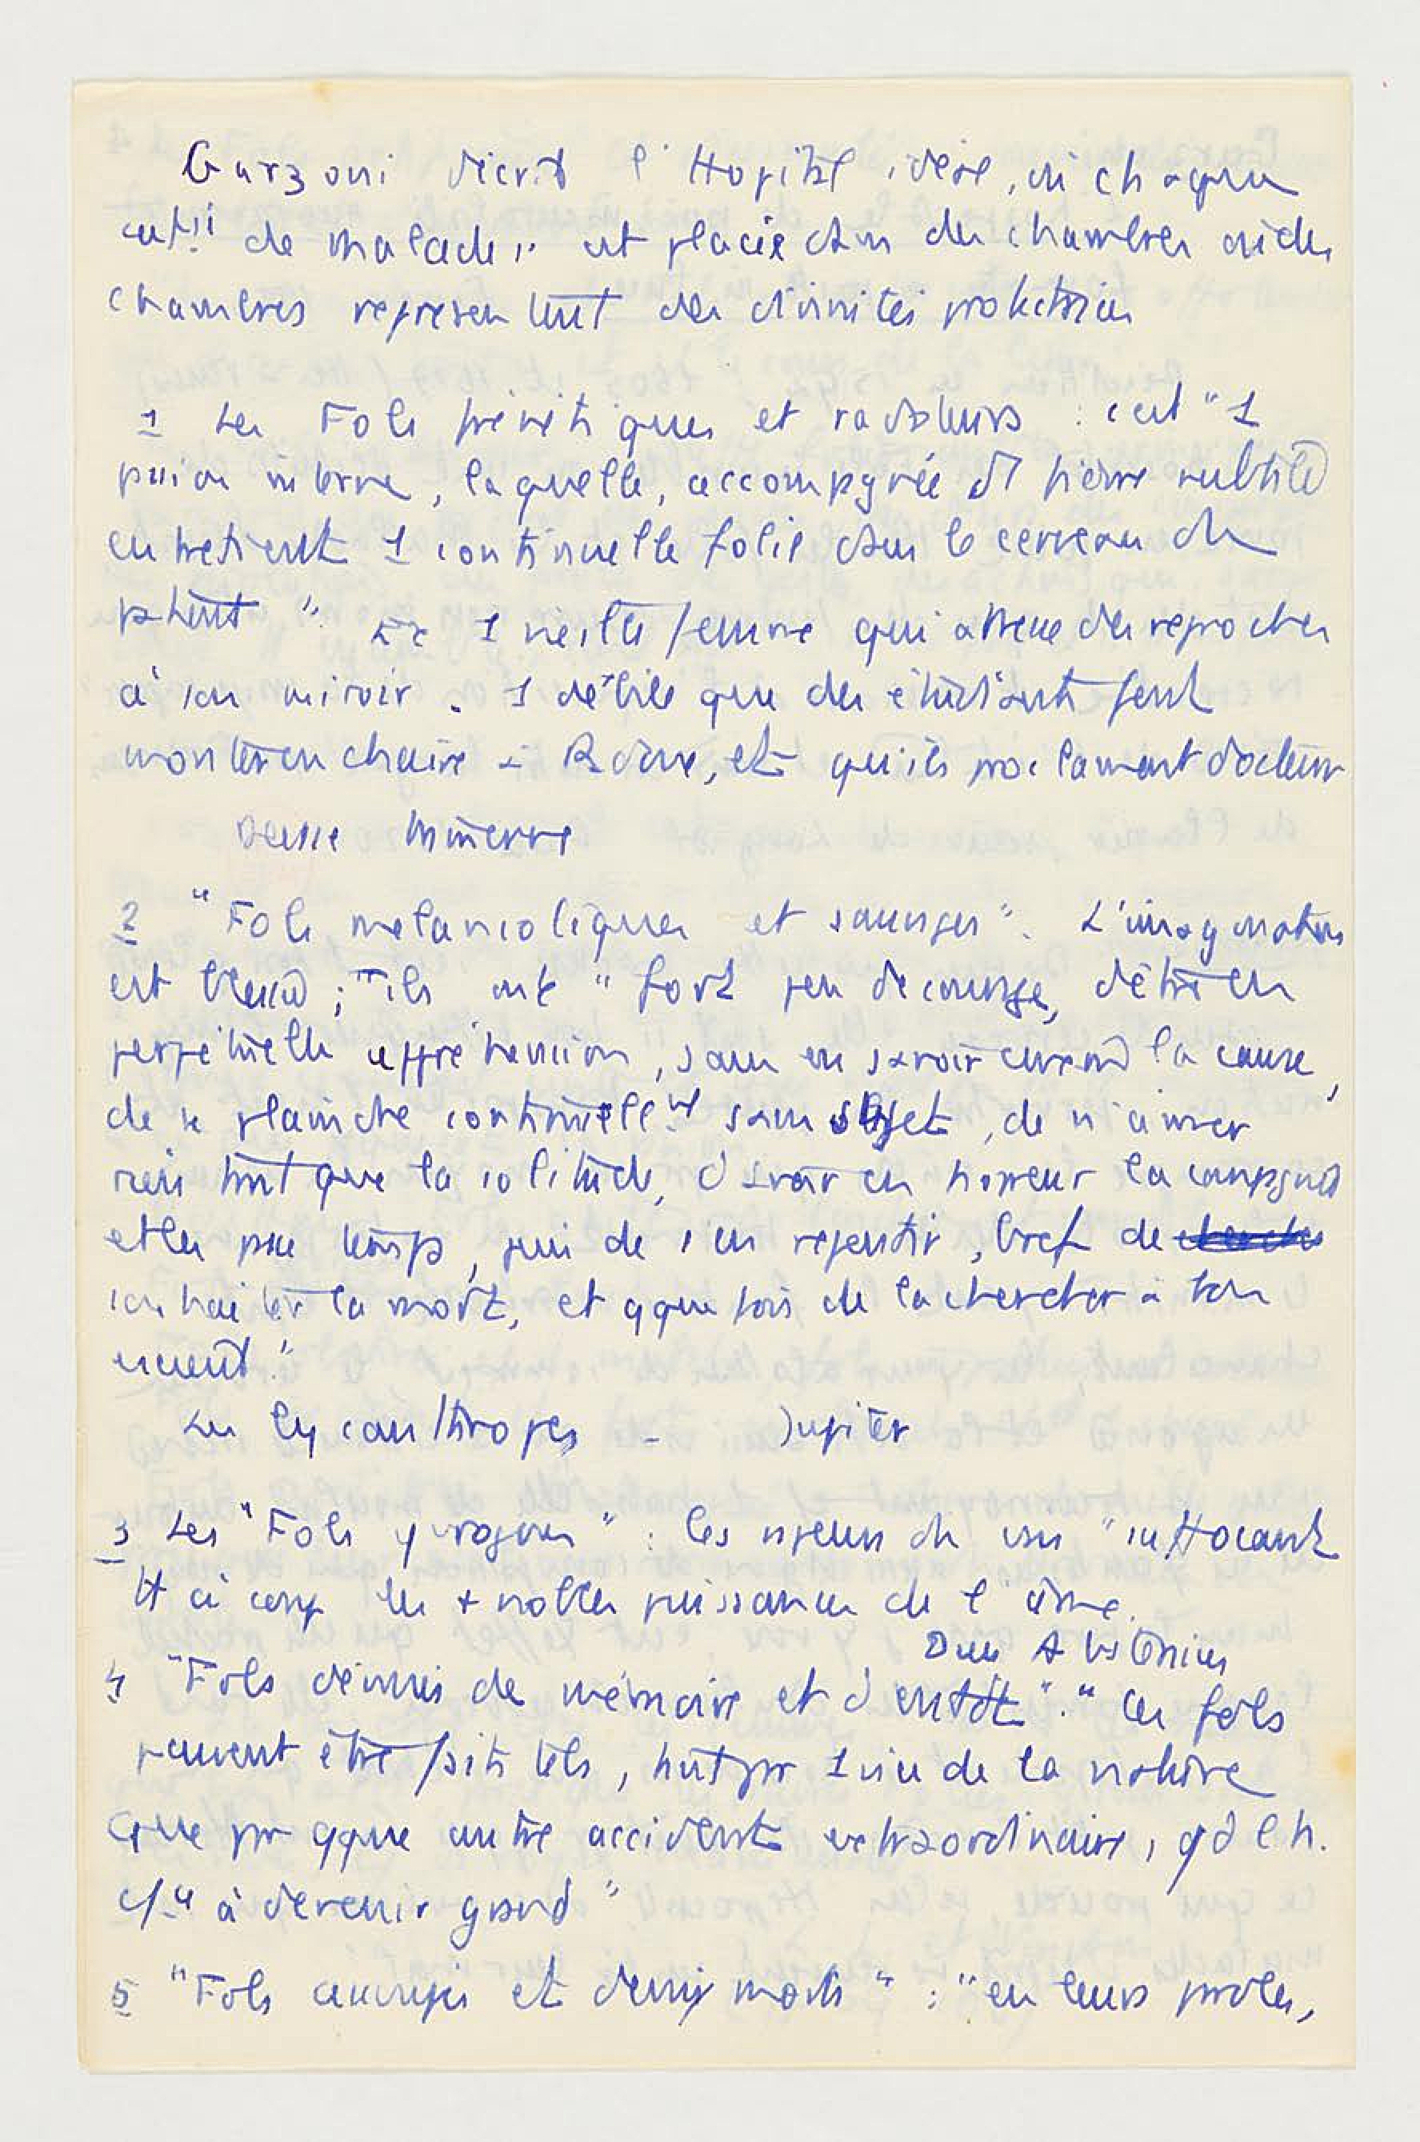 Garzoni décrit l'Hopital idéal, où chaque
catie de malades est placée dans des chambres où des
chambres representent des divinités protectrices
1 Les Fols frénétiques et radoteurs : c'est "1
interne, laquelle, accompagnée de fièvre subtile
entretient 1 continuelle folie dans le cerveau du
patient" Ex 1 vieille femme qui adresse des reproches
à son miroir. 1 débile que des étudiants font
monter en chaire à et qu'ils proclament docteur
Déesse Minerve
2 "Fols melancoliques et sauvages". L'imagination
est blessée ; ils ont "fort peu de courage, d'être en
perpétuelle apprehension, sans en savoir la cause,
de se plaindre continuellent sans objet, de n'aimer
rien tant que la solitude, d'avoir en horreur la compagnie
et les passe temps, puis de s'en repentir, bref de cherche
souhaiter la mort, et qque fois de la chercher à ton
escient."
Les lycanthropes - Jupiter
3 Les "Fols yvrognes" : les vapeurs du vin "suffocant
tt à coup les + nobles puissances de l'âme.
Dieu Abstemius
4 "Fols démis de mémoire et d'entdt". "Les fols
peuvent être faits tels, tant pr 1 vice de la nature
que pr qque autre accident extraordinaire, qd l'h.
c/- à devenir grand"
5 "Fols assoupis et demy morts" : "en leurs paroles,